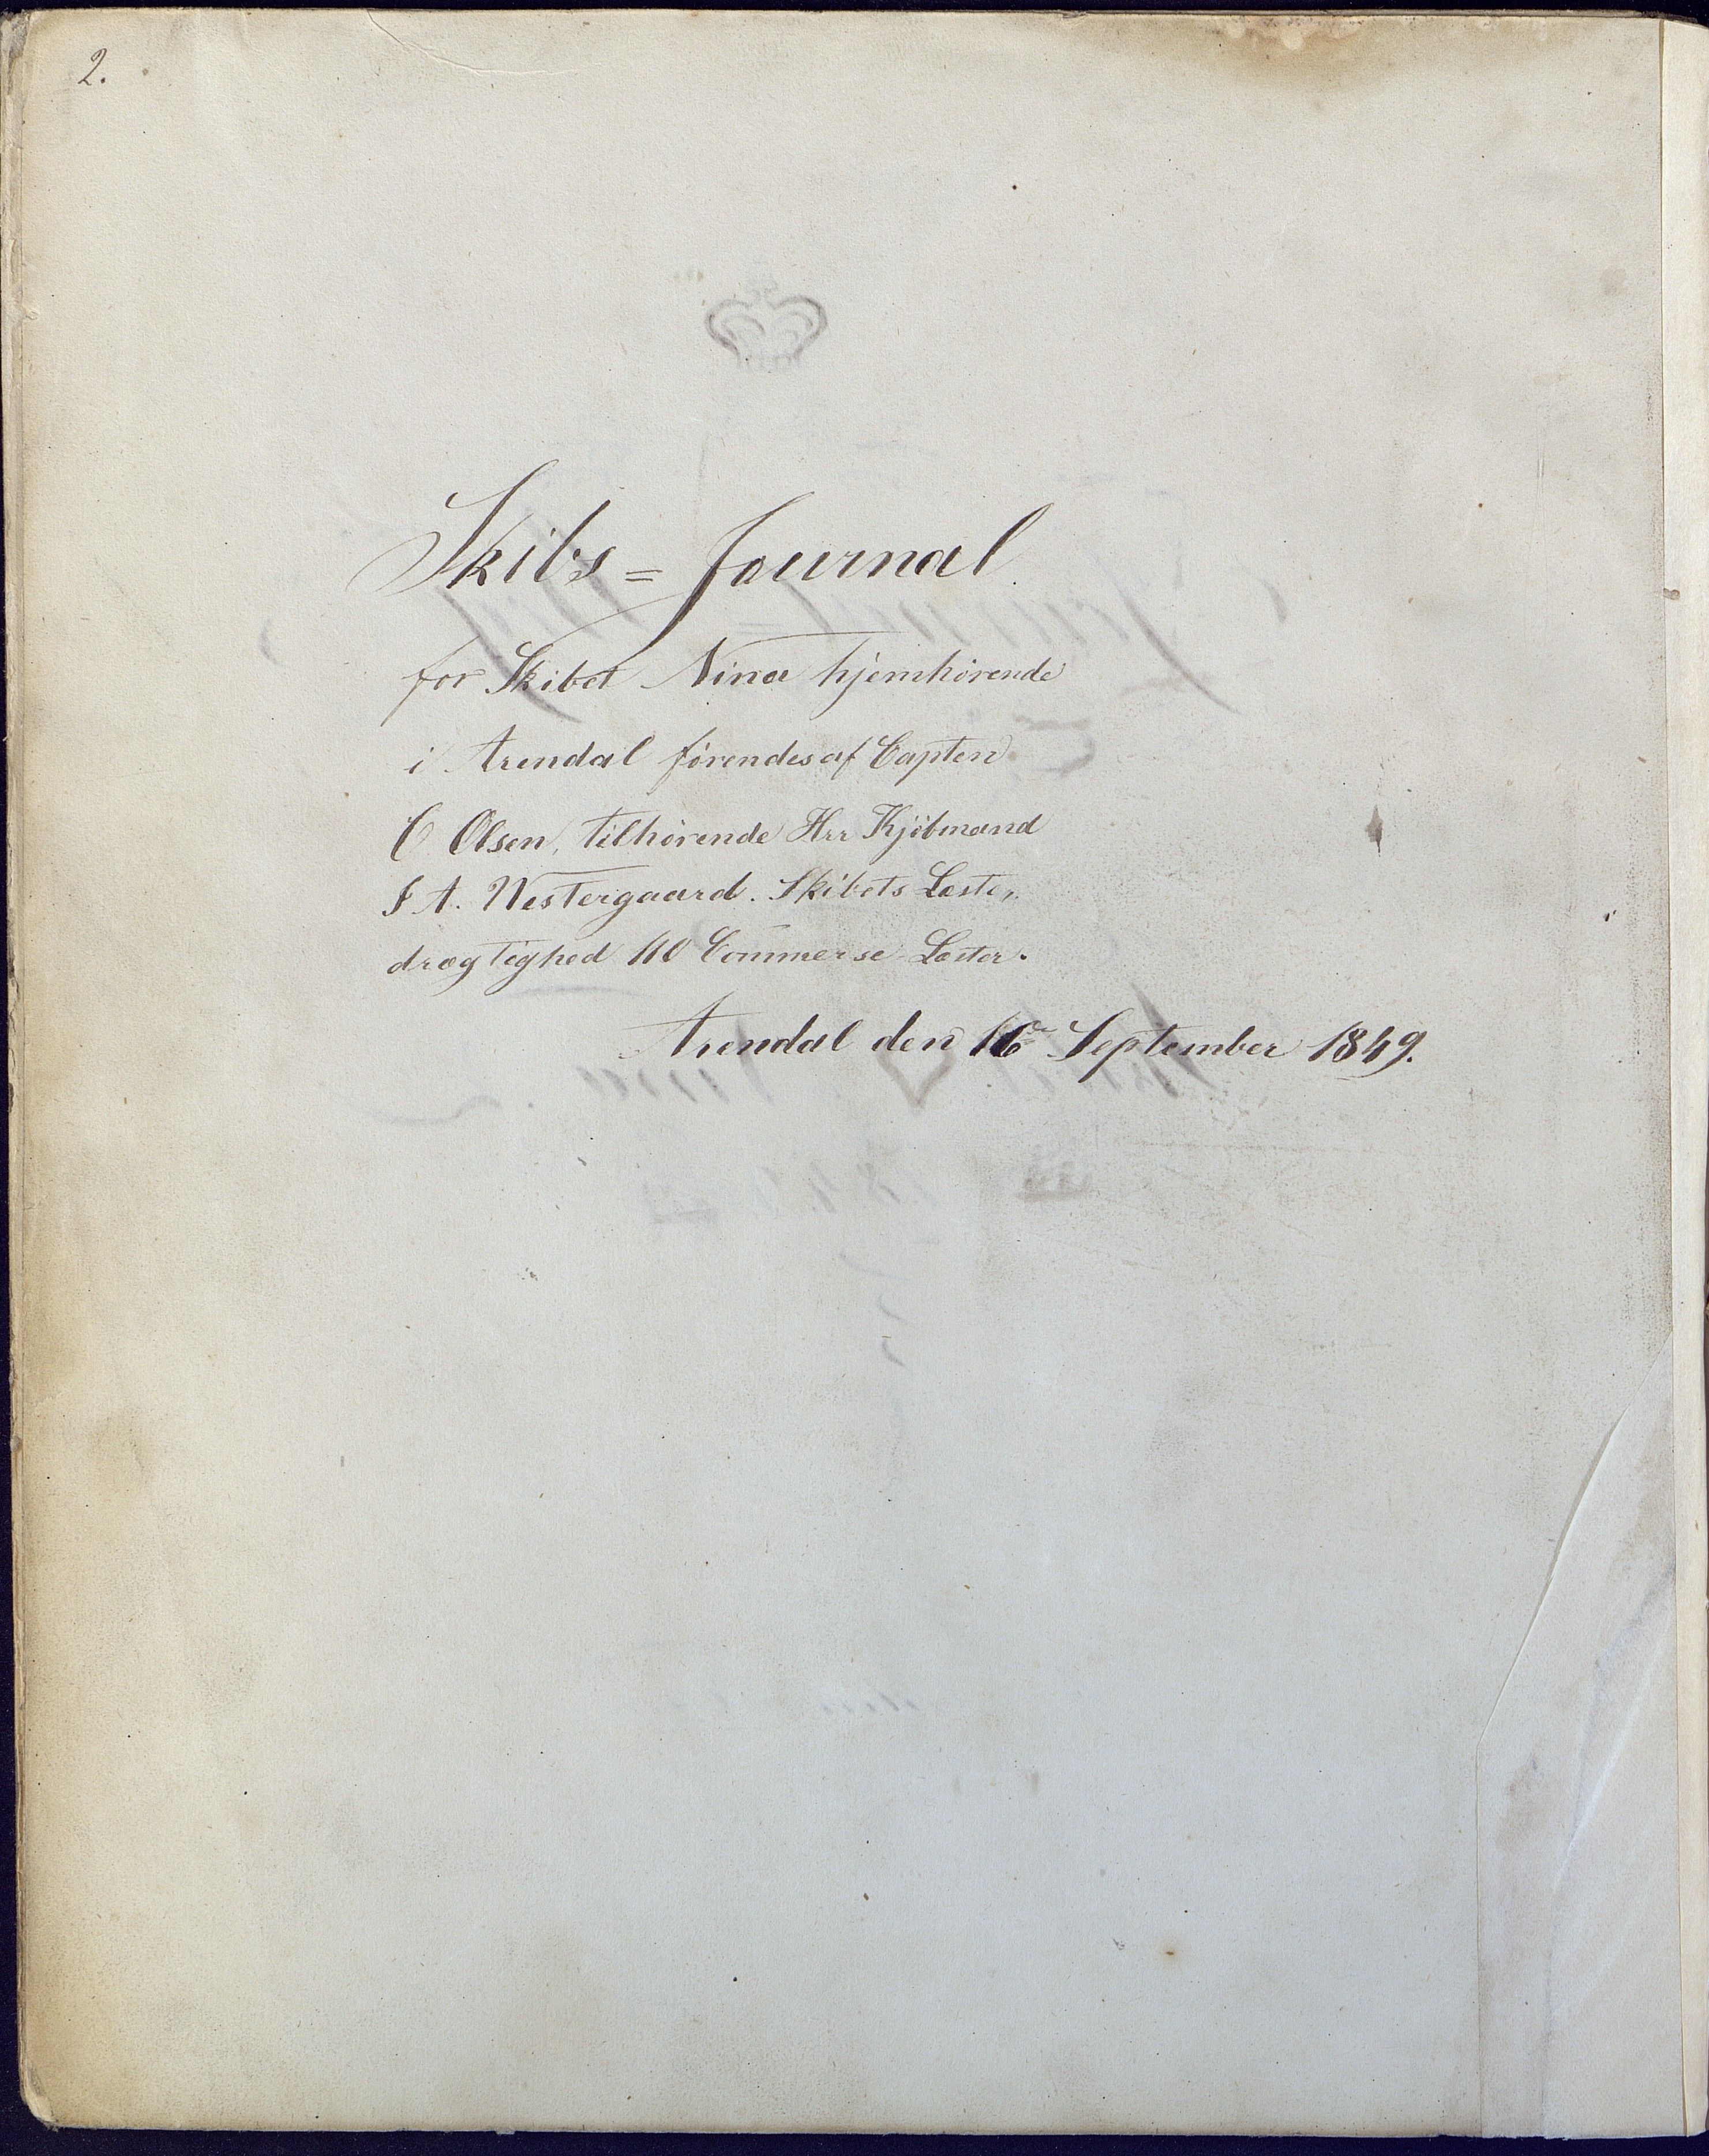 2.
Skibs = Journal.
for Skibet Nina hjemhörende
i Arendal förendes af Capten
C Olsen, tilhörende Hrr Kjöbmand
J A. Westergaard. Skibets Læste,,
drægtighed 110 Commerse-Læster.
Arendal den 16de September 1849.